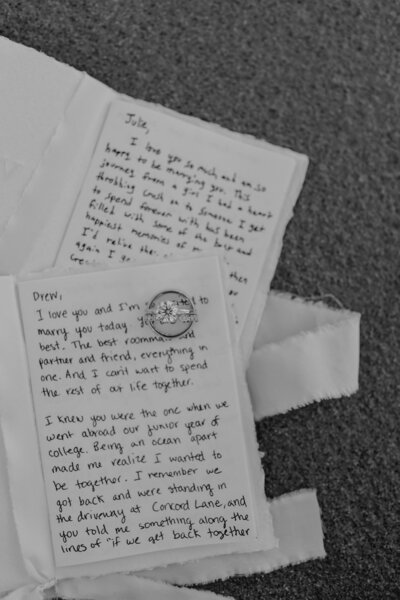 Julie,
I love you so much and am so
happy to be marrying you. This
journey from a girl I had a heart
throbbing crush on to someone I get
to spend forever with has been
filled with some of the best and
happiest memories of m
I'd relive the
again I
then
or
Drew,
I love you and I'm to
marry you today. yo
best. The best roomma nd
partner and friend, everything in
one. And I can't wait to spend
the rest of our life together.
I knew you were the one when we
went abroad our junior year of
college. Being an ocean apart
made me realize I wanted to
be together. I remember we
got back and were standing in
the driveway at Concord Lane, and
you told me something along the
lines of "if we get back together